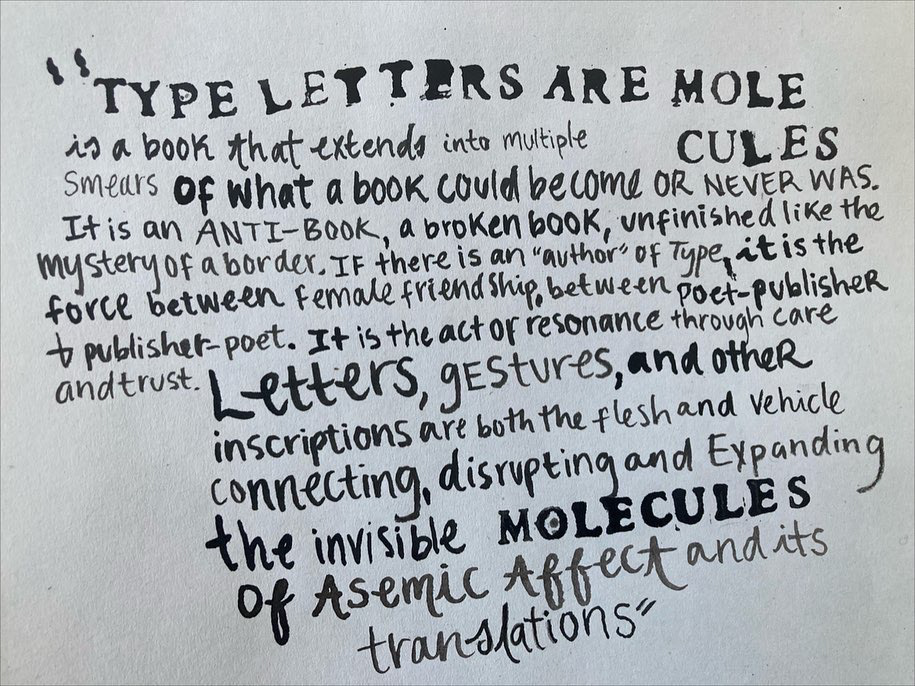 "TYPE LETTERS ARE MOLE
CULES
is a book that extends into multiple
smears of what a book could become OR NEVER WAS.
It is an ANTI-BOOK, a broken book, unfinished like the
mystery of a border. IF there is an "author" of Type, it is the
force between female friendship, between poet-publisheR
+ publisher-poet. It is the act of resonance through care
and trust. Letters, gEStures, and otheR
inscriptions are both the flesh and vehicle
connecting, disrupting and Expanding
the invisible MOLECULES
of Asemic Affect and its
translations"